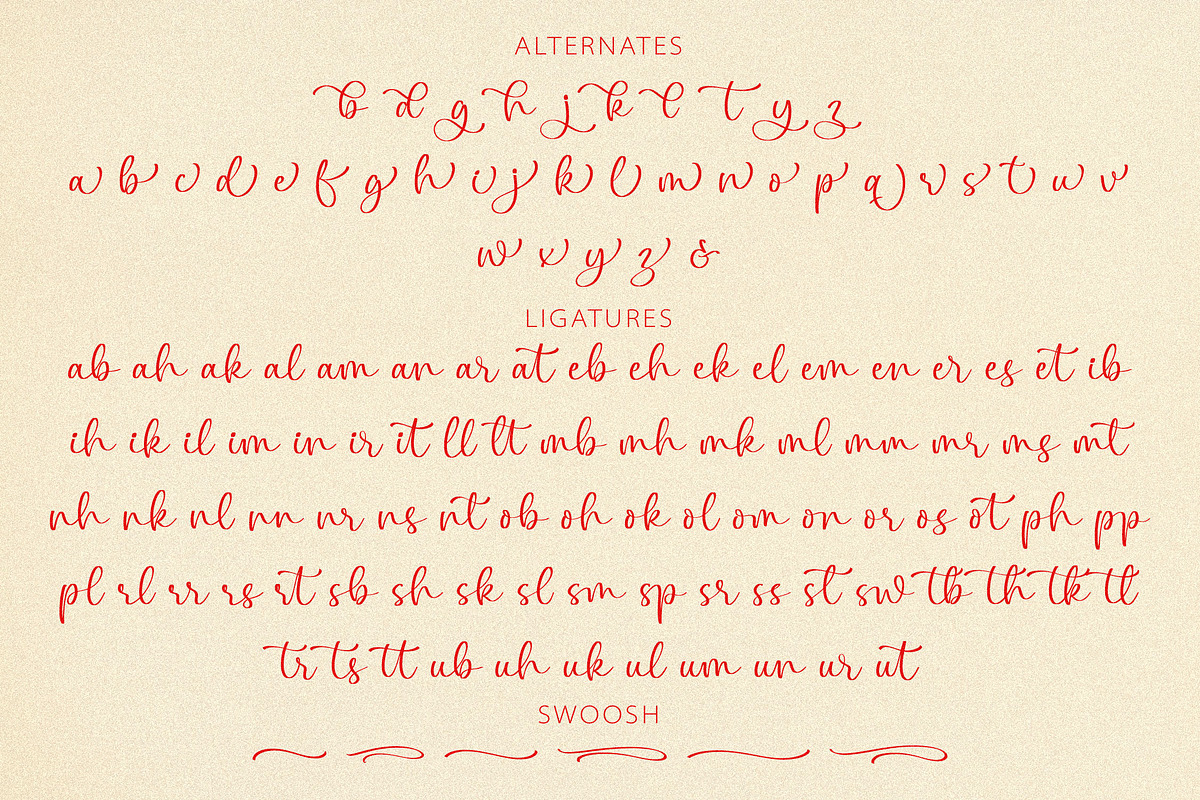 ALTERNATES
b d g h j k l t y z
a b c d e f g h i j k l m n o p q r s t u v
w x y z &
LIGATURES
ab ah ak al am an ar at eb eh ek el em en er es et ib
ih ik il im in ir it ll lt mb mh mk ml mm mr ms mt
nh nk nl nn nr ns nt ob oh ok ol om on or os ot ph pp
pl rl rr rs rt sb sh sk sl sm sp sr ss st sw tb th tk tl
tr ts tt ub uh uk ul um un ur ut
SWOOSH